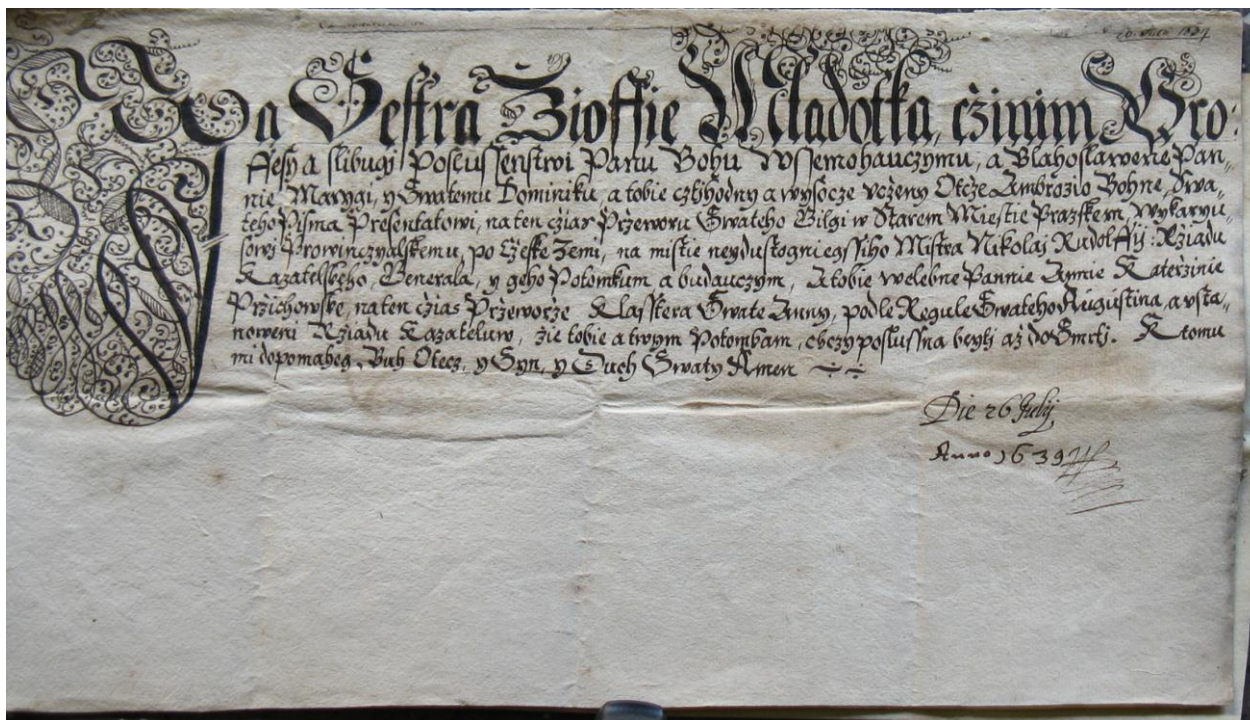 Ja Sestra Žioffie Mladotka, cžinim Pro:
ffesy a slibugi Poslussenstwi Panu Bohu Wssemohauczymu, a Blahoslawene Pan-
nie Marygi, y Swatemu Dominiku, a tobie cztihodny a wysocze vczeny Otcže Ambrožio Bohne, Swa-
teho Pisma Presentatowi, na ten cžias Przeworu Swateho Gilgi w Starem Miestie Pražskem, Wykaryu-
sowi Prowinczyalskemu, po Cžeske Zemi, na mistie neydustogniegssiho Mistra Nikolaj Rudolffij: Ržiadu
Kazatelskeho, Generala, y geho Potomkum a budauczym, A tobie welebne Pannie Annie Kateržinie
Pržichowske, na ten cžias Przeworže Klasstera Swate Anny, podle Regule Swateho Augustina, a vsta-
noweni Ržiadu Kazateluw, žie tobie a twym Potombam, chczy poslussna beyti až do Smrtj. K tomu
mi dopomaheg Buh Otecz, y Syn, y Duch Swaty Amen
Die 26 Julij
Anno 1639